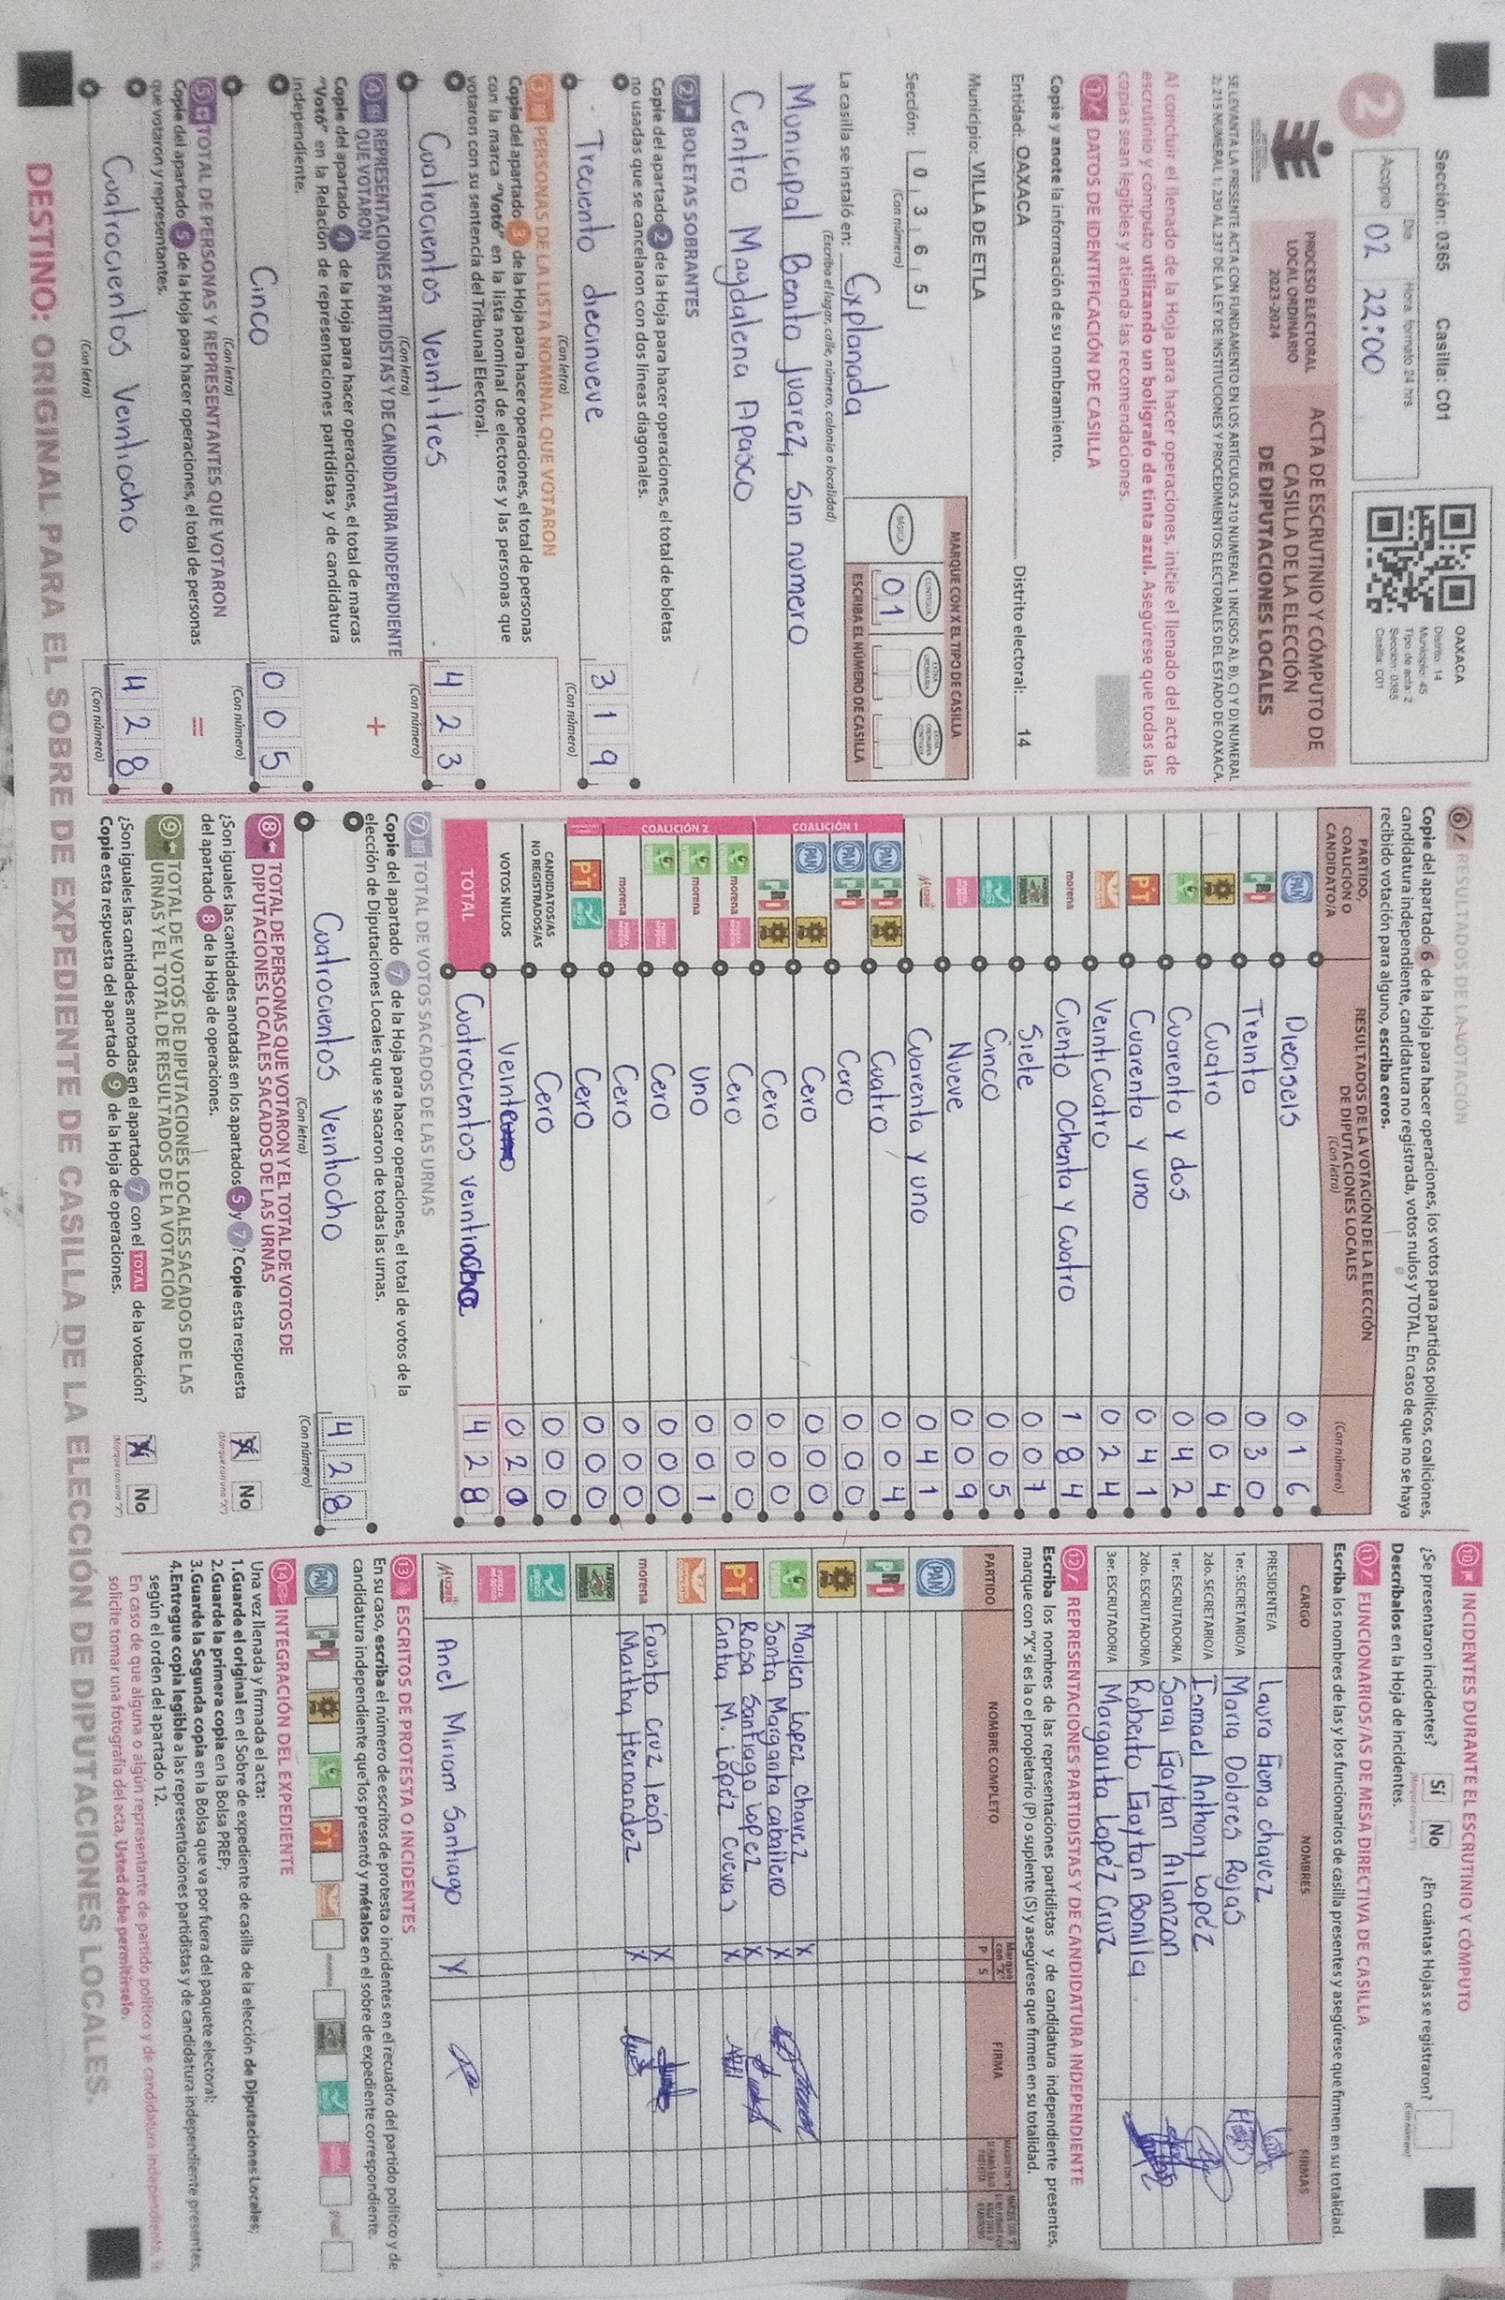 Sección: 0365 Casilla: C01
2
Día Hora: formato 24 hrs.
Acopio 02 22:00
OAXACA
Distrito: 14
Municipio: 45
Tipo de acta: 2
Sección: 0365
Casilla: C01
PROCESO ELECTORAL
LOCAL ORDINARIO
2023-2024
ACTA DE ESCRUTINIO Y CÓMPUTO DE
CASILLA DE LA ELECCIÓN
DE DIPUTACIONES LOCALES
SE LEVANTA LA PRESENTE ACTA CON FUNDAMENTO EN LOS ARTÍCULOS 210 NUMERAL 1 INCISOS A), B), C) Y D) NUMERAL
2; 215 NUMERAL 1; 230 AL 237 DE LA LEY DE INSTITUCIONES Y PROCEDIMIENTOS ELECTORALES DEL ESTADO DE OAXACA.
Al concluir el llenado de la Hoja para hacer operaciones, inicie el llenado del acta de
escrutinio y cómputo utilizando un bolígrafo de tinta azul. Asegúrese que todas las
copias sean legibles y atienda las recomendaciones.
1 DATOS DE IDENTIFICACIÓN DE CASILLA
Copie y anote la información de su nombramiento.
Entidad: OAXACA Distrito electoral: 14
Municipio: VILLA DE ETLA
Sección: 0 3 6 5
(Con número)
MARQUE CON X EL TIPO DE CASILLA
BÁSICA CONTIGUA EXTRA ORDINARIA EXTRA ORDINARIA CONTIGUA
01
ESCRIBA EL NÚMERO DE CASILLA
La casilla se instaló en: Explanada
(Escriba el lugar, calle, número, colonia o localidad)
Municipal Benito Juarez, Sin numero
Centro Magdalena Apasco
2 BOLETAS SOBRANTES
Copie del apartado 2 de la Hoja para hacer operaciones, el total de boletas
no usadas que se cancelaron con dos líneas diagonales.
Treciento diecinueve 3 1 9
(Con letra) (Con número)
3 PERSONAS DE LA LISTA NOMINAL QUE VOTARON
Copie del apartado 3 de la Hoja para hacer operaciones, el total de personas
con la marca "Votó" en la lista nominal de electores y las personas que
votaron con su sentencia del Tribunal Electoral.
Cuatrocientos Veintitres 4 2 3
(Con letra) (Con número)
4 REPRESENTACIONES PARTIDISTAS Y DE CANDIDATURA INDEPENDIENTE
QUE VOTARON
+
Copie del apartado 4 de la Hoja para hacer operaciones, el total de marcas
"Votó" en la Relación de representaciones partidistas y de candidatura
independiente.
Cinco 0 0 5
(Con letra) (Con número)
5 TOTAL DE PERSONAS Y REPRESENTANTES QUE VOTARON
=
Copie del apartado 5 de la Hoja para hacer operaciones, el total de personas
que votaron y representantes.
Cuatrocientos Veintiocho 4 2 8
(Con letra) (Con número)
6 RESULTADOS DE LA VOTACIÓN
Copie del apartado 6 de la Hoja para hacer operaciones, los votos para partidos políticos, coaliciones,
candidatura independiente, candidatura no registrada, votos nulos y TOTAL. En caso de que no se haya
recibido votación para alguno, escriba ceros.
PARTIDO,
COALICIÓN O
CANDIDATO/A
RESULTADOS DE LA VOTACIÓN DE LA ELECCIÓN
DE DIPUTACIONES LOCALES
(Con letra) (Con número)
PAN Dieciseis 0 1 6
PRI Treinta 0 3 0
PRD Cuatro 0 0 4
Cuarenta y dos 0 4 2
PT Cuarenta y uno 0 4 1
Veinticuatro 0 2 4
morena Ciento Ochenta y Cuatro 1 8 4
Siete 0 0 7
Cinco 0 0 5
Nueve 0 0 9
Mujer Cuarenta y uno 0 4 1
COALICIÓN 1
PAN PRI PRD Cuatro 0 0 4
PAN PRI Cero 0 0 0
PAN PRD Cero 0 0 0
PRI PRD Cero 0 0 0
COALICIÓN 2
morena Cero 0 0 0
morena Uno 0 0 1
Cero 0 0 0
morena Cero 0 0 0
PT Cero 0 0 0
CANDIDATOS/AS
NO REGISTRADOS/AS Cero 0 0 0
VOTOS NULOS Veinte 0 2 0
TOTAL Cuatrocientos veintiocho 4 2 8
7 TOTAL DE VOTOS SACADOS DE LAS URNAS
Copie del apartado 7 de la Hoja para hacer operaciones, el total de votos de la
elección de Diputaciones Locales que se sacaron de todas las urnas.
Cuatrocientos Veintiocho 4 2 8
(Con letra) (Con número)
8 TOTAL DE PERSONAS QUE VOTARON Y EL TOTAL DE VOTOS DE
DIPUTACIONES LOCALES SACADOS DE LAS URNAS
¿Son iguales las cantidades anotadas en los apartados 5 y 7? Copie esta respuesta
del apartado 8 de la Hoja de operaciones.
X No
(Marque con una "X")
9 TOTAL DE VOTOS DE DIPUTACIONES LOCALES SACADOS DE LAS
URNAS Y EL TOTAL DE RESULTADOS DE LA VOTACIÓN
¿Son iguales las cantidades anotadas en el apartado 7 con el TOTAL de la votación?
Copie esta respuesta del apartado 9 de la Hoja de operaciones.
X No
(Marque con una "X")
10 INCIDENTES DURANTE EL ESCRUTINIO Y CÓMPUTO
¿Se presentaron incidentes? Sí No ¿En cuántas Hojas se registraron?
(Marque con una "X") (Con número)
Descríbalos en la Hoja de incidentes.
11 FUNCIONARIOS/AS DE MESA DIRECTIVA DE CASILLA
Escriba los nombres de las y los funcionarios de casilla presentes y asegúrese que firmen en su totalidad.
CARGO NOMBRES FIRMAS
PRESIDENTE/A Laura Gema chavez
1er. SECRETARIO/A Maria Dolores Rojas
2do. SECRETARIO/A Ismael Anthony Lopéz
1er. ESCRUTADOR/A Sarai Gaytan Arlanzon
2do. ESCRUTADOR/A Roberto Gaytan Bonilla
3er. ESCRUTADOR/A Margarita Lopéz Cruz
12 REPRESENTACIONES PARTIDISTAS Y DE CANDIDATURA INDEPENDIENTE
Escriba los nombres de las representaciones partidistas y de candidatura independiente presentes,
marque con "X" si es la o el propietario (P) o suplente (S) y asegúrese que firmen en su totalidad.
PARTIDO NOMBRE COMPLETO Marque con "X" P S FIRMA
PAN
PRI
PRD
Mailen Lopez Chavez X
Santa Margarita caballero X
PT Rosa Santiago Lopez X
Cintia M. Lopéz Cuevas X
morena Fausto Cruz León X
Martha Hernandez X
Mujer Anel Miriam Santiago X
13 ESCRITOS DE PROTESTA O INCIDENTES
En su caso, escriba el número de escritos de protesta o incidentes en el recuadro del partido político y de
candidatura independiente que los presentó y métalos en el sobre de expediente correspondiente.
PAN PRI PRD PT morena
14 INTEGRACIÓN DEL EXPEDIENTE
Una vez llenada y firmada el acta:
1.Guarde el original en el Sobre de expediente de casilla de la elección de Diputaciones Locales;
2.Guarde la primera copia en la Bolsa PREP;
3.Guarde la Segunda copia en la Bolsa que va por fuera del paquete electoral;
4.Entregue copia legible a las representaciones partidistas y de candidatura independiente presentes,
según el orden del apartado 12.
En caso de que alguna o algún representante de partido político y de candidatura independiente le
solicite tomar una fotografía del acta, Usted debe permitírselo.
DESTINO: ORIGINAL PARA EL SOBRE DE EXPEDIENTE DE CASILLA DE LA ELECCIÓN DE DIPUTACIONES LOCALES.